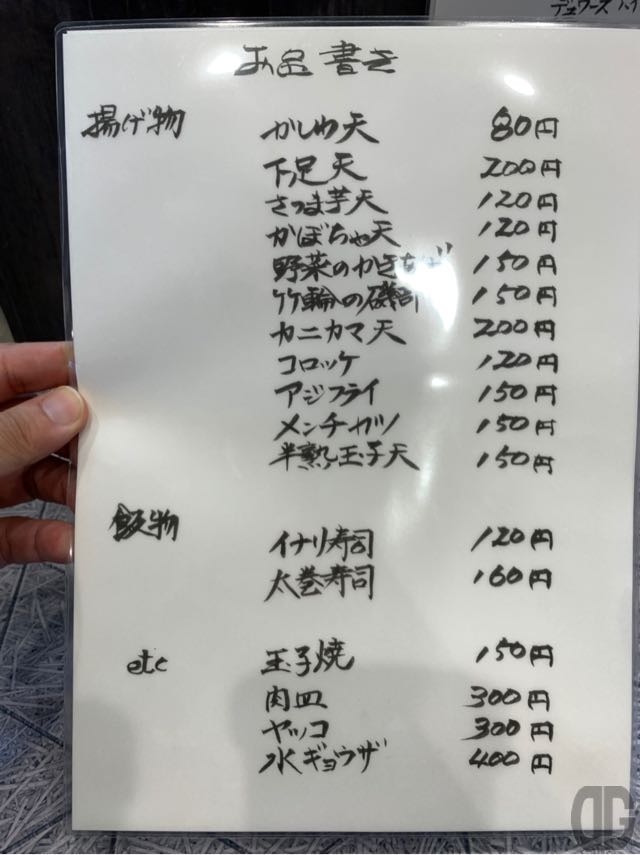 デュワーズ ハイ
お品書き
揚げ物
かしわ天 80円
下足天 200円
さつま芋天 120円
かぼちゃ天 120円
野菜のかきあげ 150円
竹輪の磯 150円
カニカマ天 200円
コロッケ 120円
アジフライ 150円
メンチカツ 150円
半熟玉子天 150円
飯物
イナリ寿司 120円
太巻寿司 160円
etc
玉子焼 150円
肉皿 300円
ヤッコ 300円
水ギョウザ 400円
DG